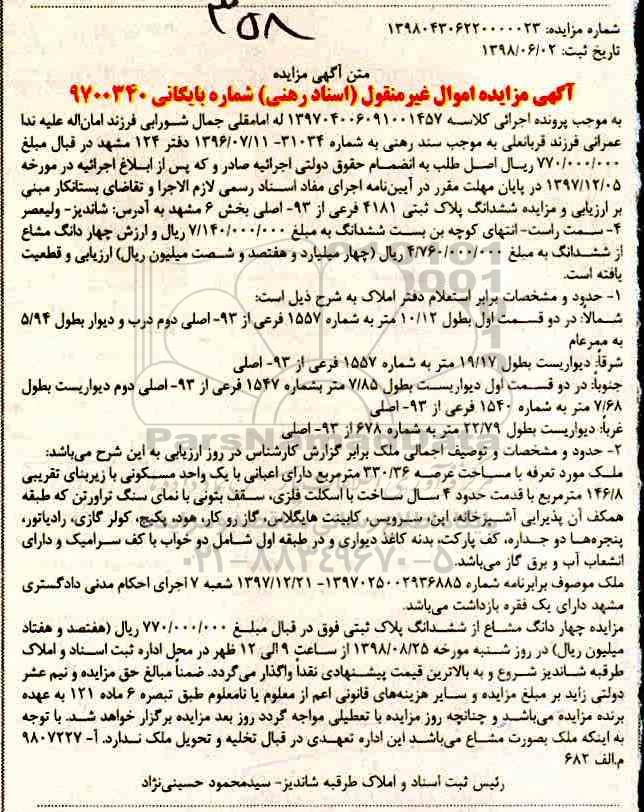 ۳۵۸
شماره مزایده: ۱۳۹۸۰۴۳۰۶۲۲۰۰۰۰۰۲۳
تاریخ ثبت: ۱۳۹۸/۰۶/۰۲
متن آگهی مزایده
آگهی مزایده اموال غیرمنقول (اسناد رهنی) شماره بایگانی ۹۷۰۰۳۴۰
به موجب پرونده اجرائی کلاسه ۱۳۹۷۰۴۰۰۶۰۹۱۰۰۱۴۵۷ له امامقلی جمال شورابی فرزند امان‌اله علیه ندا
عمرانی فرزند قربانعلی به موجب سند رهنی به شماره ۳۱۰۳۴- ۱۳۹۶/۰۷/۱۱ دفتر ۱۲۴ مشهد در قبال مبلغ
۷۷۰/۰۰۰/۰۰۰ ریال اصل طلب به انضمام حقوق دولتی اجرائیه صادر و که پس از ابلاغ اجرائیه در مورخه
۱۳۹۷/۱۲/۰۵ در پایان مهلت مقرر در آیین‌نامه اجرای مفاد اسناد رسمی لازم الاجرا و تقاضای بستانکار مبنی
بر ارزیابی و مزایده ششدانگ پلاک ثبتی ۴۱۸۱ فرعی از ۹۳- اصلی بخش ۶ مشهد به آدرس: شاندیز- ولیعصر
۴- سمت راست- انتهای کوچه بن بست ششدانگ به مبلغ ۷/۱۴۰/۰۰۰/۰۰۰ ریال و ارزش چهار دانگ مشاع
از ششدانگ به مبلغ ۴/۷۶۰/۰۰۰/۰۰۰ ریال (چهار میلیارد و هفتصد و شصت میلیون ریال) ارزیابی و قطعیت
یافته است.
۱- حدود و مشخصات برابر استعلام دفتر املاک به شرح ذیل است:
شمالاً: در دو قسمت اول بطول ۱۰/۱۲ متر به شماره ۱۵۵۷ فرعی از ۹۳- اصلی دوم درب و دیوار بطول ۵/۹۴
به ممرعام
شرقاً: دیواریست بطول ۱۹/۱۷ متر به شماره ۱۵۵۷ فرعی از ۹۳- اصلی
جنوباً: در دو قسمت اول دیواریست بطول ۷/۸۵ متر بشماره ۱۵۴۷ فرعی از ۹۳- اصلی دوم دیواریست بطول
۷/۶۸ متر به شماره ۱۵۴۰ فرعی از ۹۳- اصلی
غرباً: دیواریست بطول ۲۲/۷۹ متر به شماره ۶۷۸ از ۹۳- اصلی
۲- حدود و مشخصات و توصیف اجمالی ملک برابر گزارش کارشناس در روز ارزیابی به این شرح می‌باشد:
ملک مورد تعرفه با مساحت عرصه ۳۳۰/۳۶ مترمربع دارای اعیانی با یک واحد مسکونی با زیربنای تقریبی
۱۴۶/۸ مترمربع با قدمت حدود ۴ سال ساخت با اسکلت فلزی، سقف بتونی با نمای سنگ تراورتن که طبقه
همکف آن پذیرایی آشپزخانه اپن، سرویس، کابینت هایگلاس، گاز رو کار، هود، پکیج، کولر گازی، رادیاتور،
پنجره‌ها دو جداره، کف پارکت، بدنه کاغذ دیواری و در طبقه اول شامل دو خواب با کف سرامیک و دارای
انشعاب آب و برق گاز می‌باشد.
ملک موصوف برابرنامه شماره ۱۳۹۷۰۲۵۰۰۲۹۳۶۸۸۵- ۱۳۹۷/۱۲/۲۱ شعبه ۷ اجرای احکام مدنی دادگستری
مشهد دارای یک فقره بازداشت می‌باشد.
مزایده چهار دانگ مشاع از ششدانگ پلاک ثبتی فوق در قبال مبلغ ۷۷۰/۰۰۰/۰۰۰ ریال (هفتصد و هفتاد
میلیون ریال) در روز شنبه مورخه ۱۳۹۸/۰۸/۲۵ از ساعت ۹ الی ۱۲ ظهر در محل اداره ثبت اسناد و املاک
طرقبه شاندیز شروع و به بالاترین قیمت پیشنهادی نقداً واگذار می‌گردد. ضمناً مبالغ حق مزایده و نیم عشر
دولتی زاید بر مبلغ مزایده و سایر هزینه‌های قانونی اعم از معلوم یا نامعلوم طبق تبصره ۶ ماده ۱۲۱ به عهده
برنده مزایده می‌باشد و چنانچه روز مزایده با تعطیلی مواجه گردد روز بعد مزایده برگزار خواهد شد. با توجه
به اینکه ملک بصورت مشاع می‌باشد این اداره تعهدی در قبال تخلیه و تحویل ملک ندارد. آ- ۹۸۰۷۲۲۷
م.الف ۶۸۲
رئیس ثبت اسناد و املاک طرقبه شاندیز- سیدمحمود حسینی‌نژاد
ParsNamadData
۰۲۱-۸۸۳۴۹۶۷۰-۵